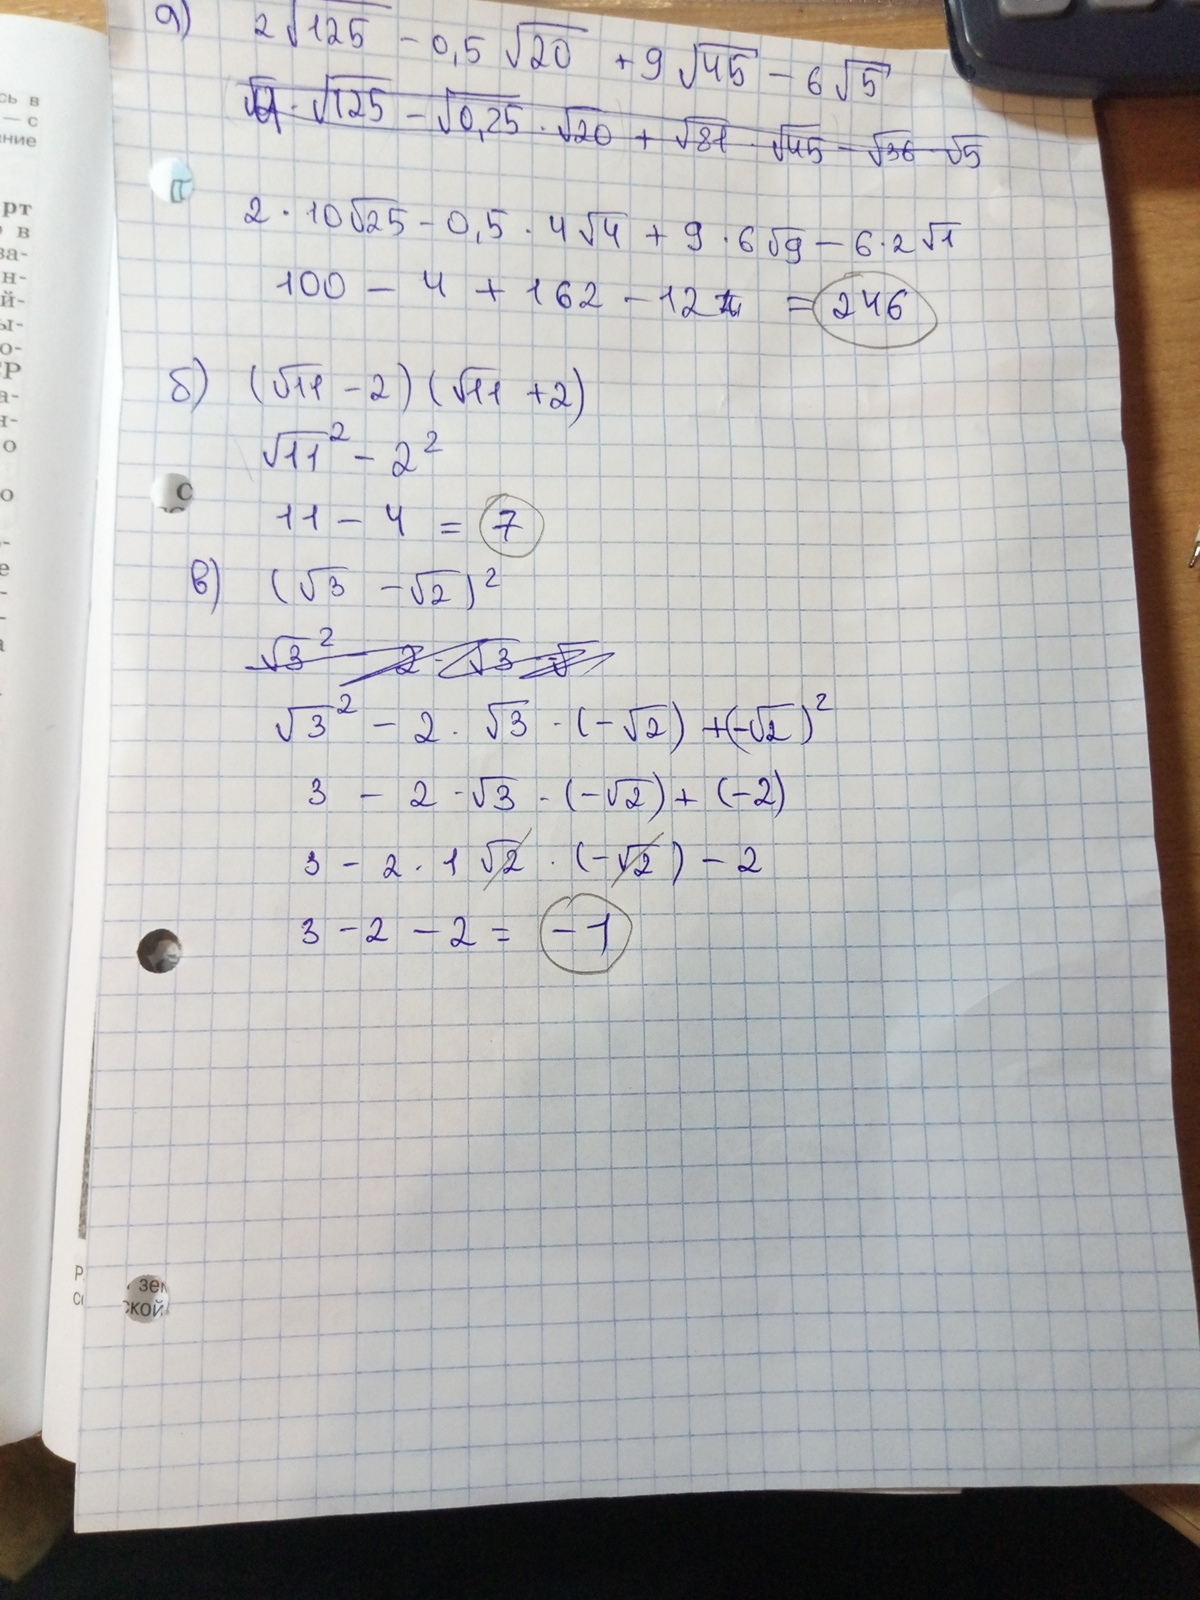 а) 2√125 - 0,5√20 + 9√45 - 6√5
√4 · √125 - √0,25 · √20 + √81 · √45 - √36 · √5
2 · 10√25 - 0,5 · 4√4 + 9 · 6√9 - 6 · 2√1
100 - 4 + 162 - 12 = 246
б) (√11 - 2)(√11 + 2)
√11² - 2²
11 - 4 = 7
в) (√3 - √2)²
√3² - 2 · √3 · √
√3² - 2 · √3 · (-√2) + (-√2)²
3 - 2 · √3 · (-√2) + (-2)
3 - 2 · 1√2 · (-√2) - 2
3 - 2 - 2 = -1
сь в
— с
ние
рт
в
за-
н-
й-
ы-
о-
СР
а-
н-
о
о
е
а
П
С
зем
ской